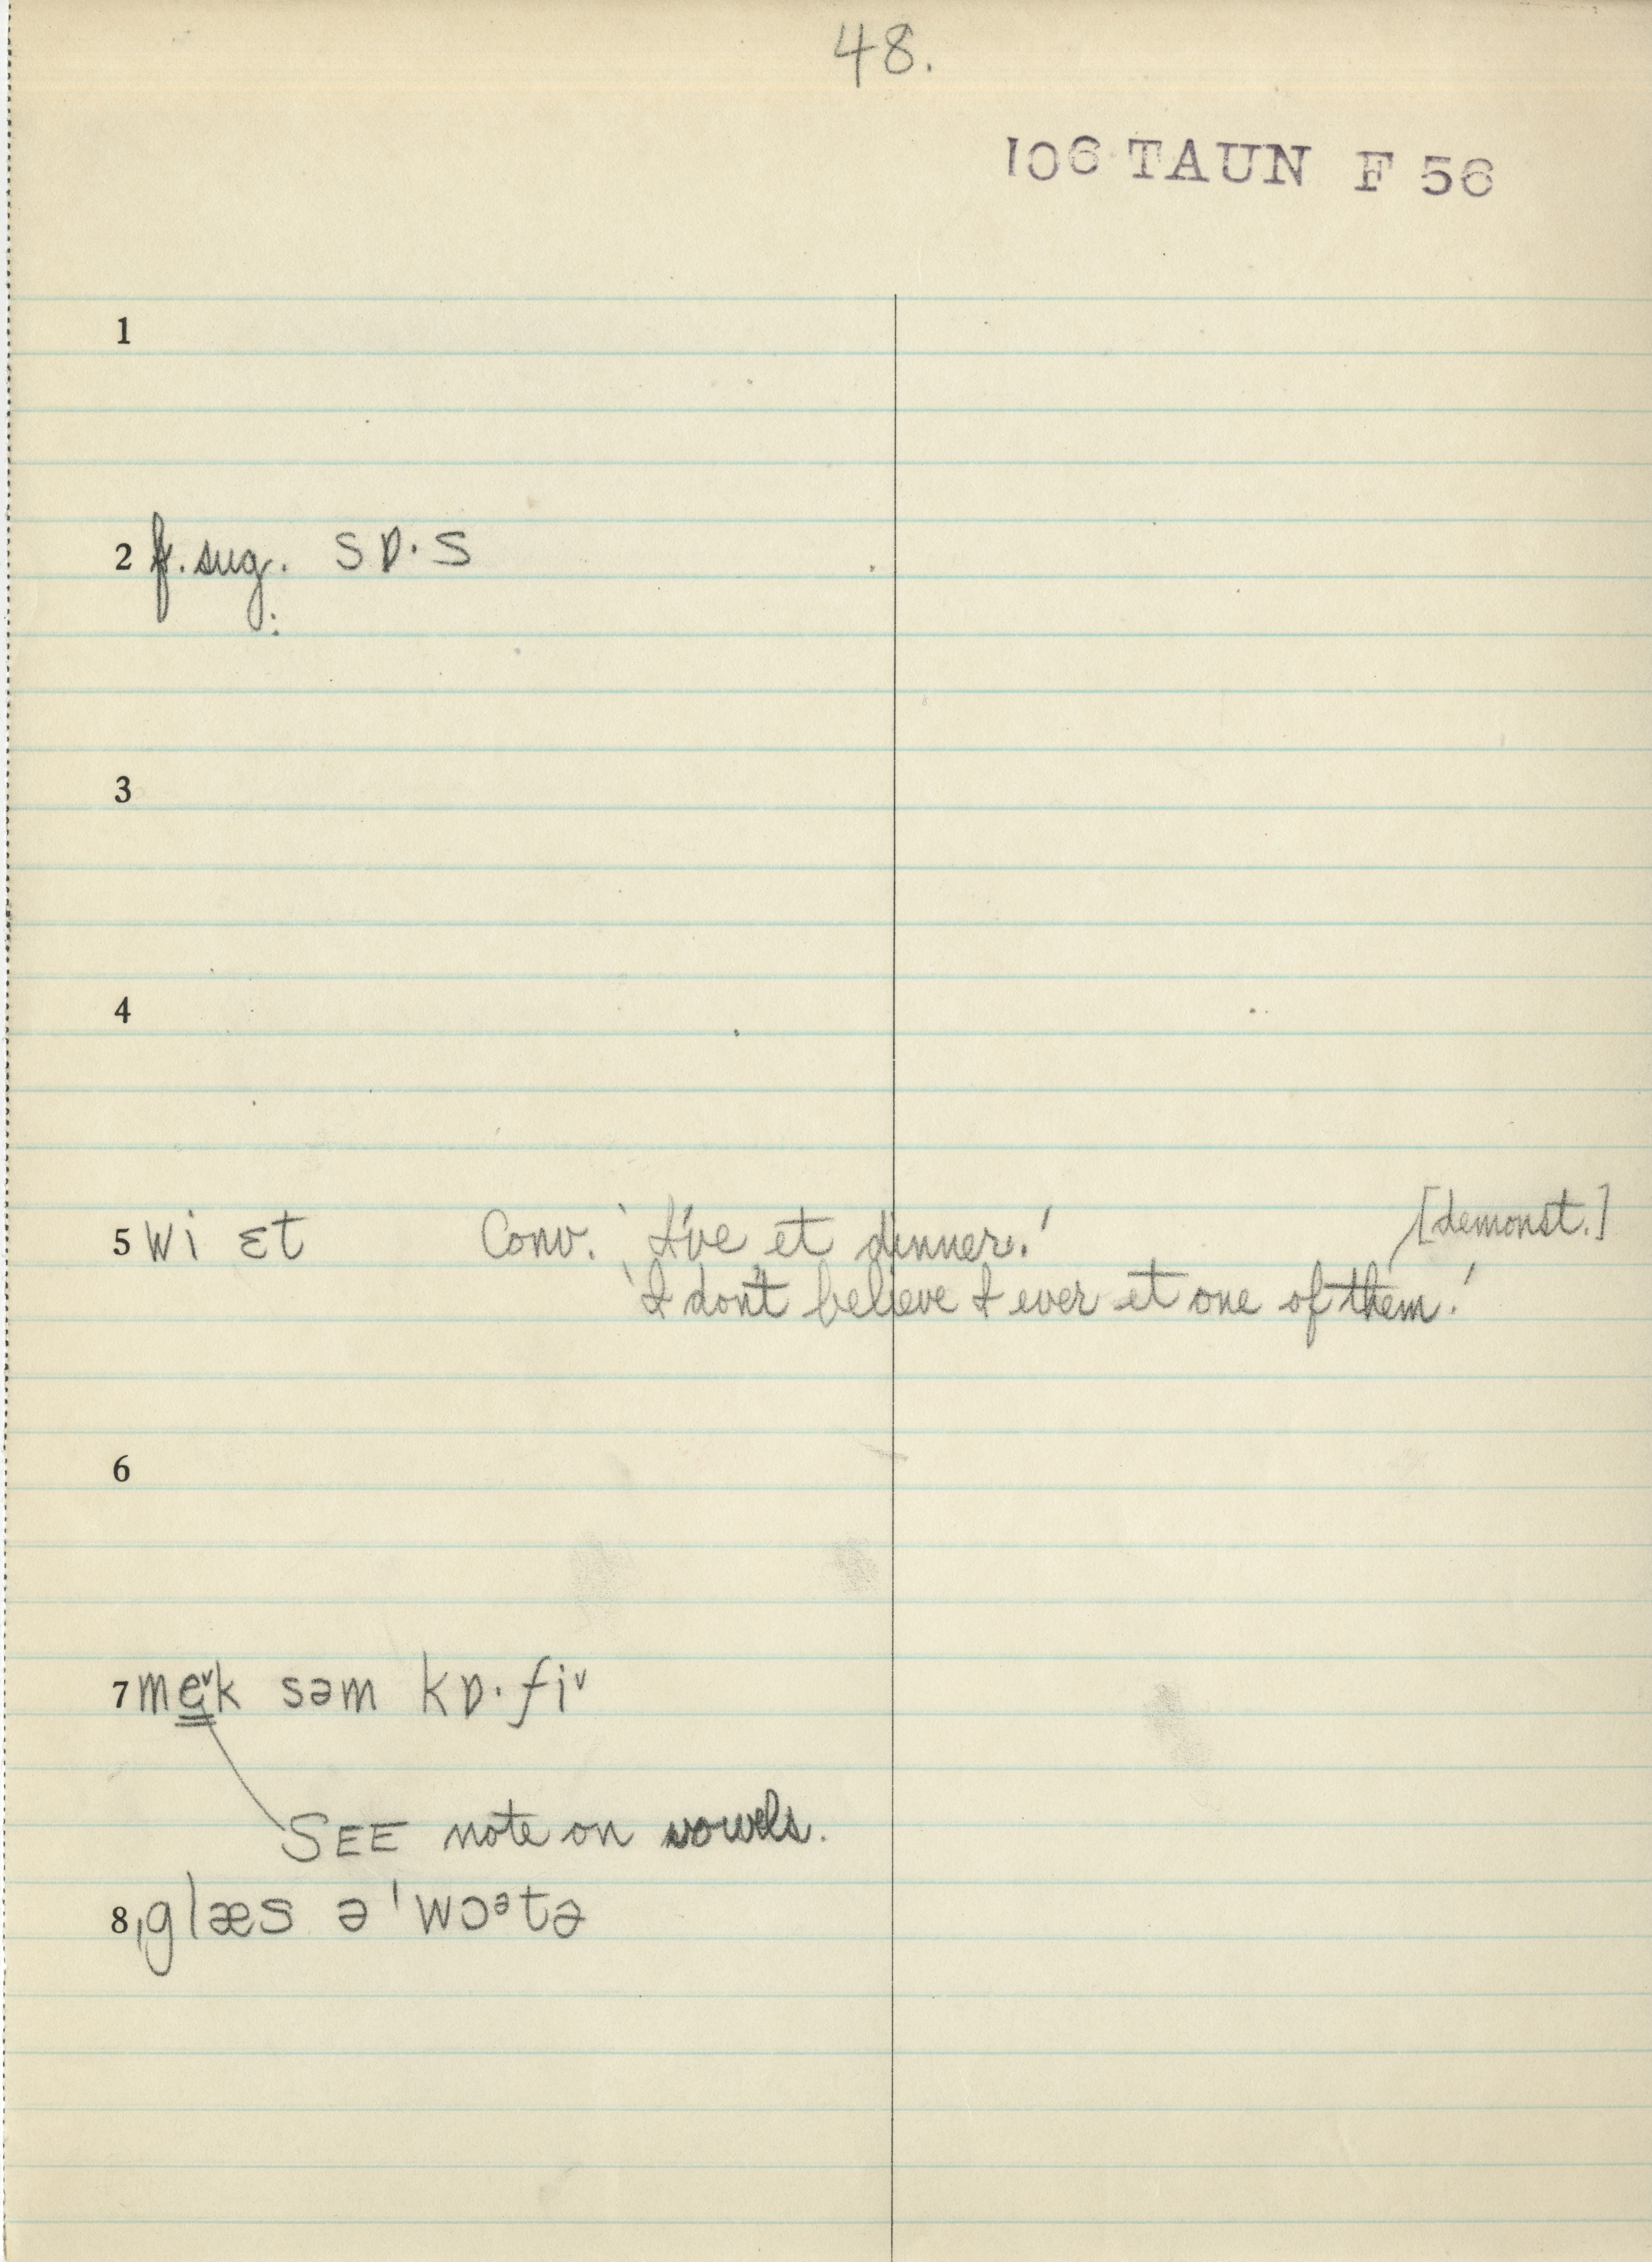 48.
106 TAUN F 56
1
2 f. sug. : sɒ·s
3
4
5 wi ɛt Conv. 'I've et dinner.' [demonst.]
'I don't believe I ever et one of them.'
6
7 me̳˅k səm kɒ·fi˅
SEE note on vowels.
8 ˌglæs ə ˈwɔᵊtə